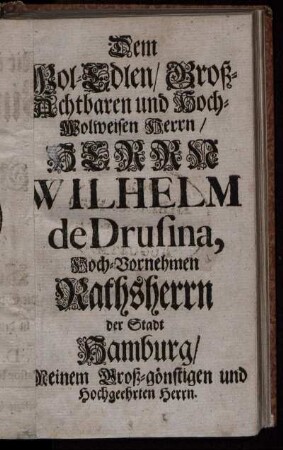 Dem
Wol-Edlen/ Groß-
Achtbaren und Hoch-
Wolweisen Herrn/
HERRN
WILHELM
de Drusina,
Hoch-Vornehmen
Rathsherrn
der Stadt
Hamburg/
Meinem Groß-günstigen und
Hochgeehrten Herrn.